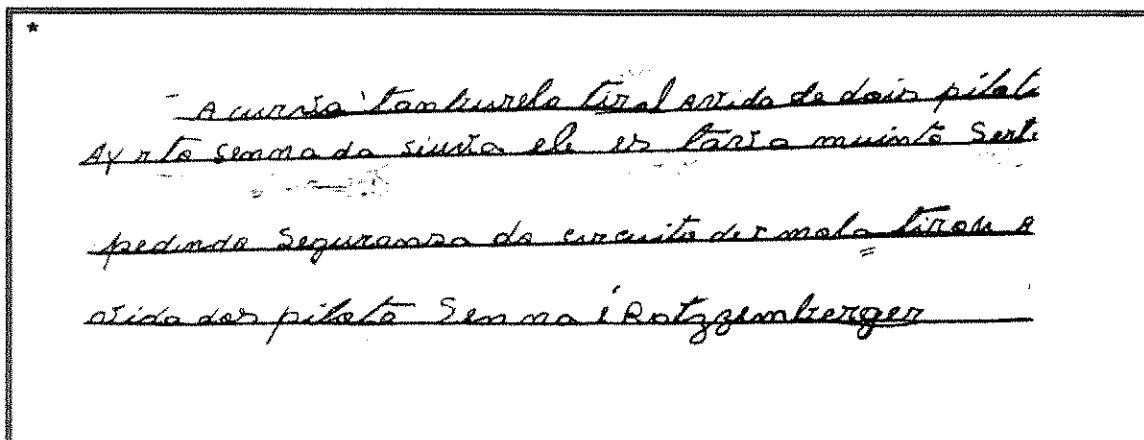 *
- A curva tanburelo tiral avida de dois pilot
Ayrto senna da siuva ele es tava muinto Serto
pedindo Seguransa do circuito der mola tirou a
vida dos piloto Senna é Rotzzemberger